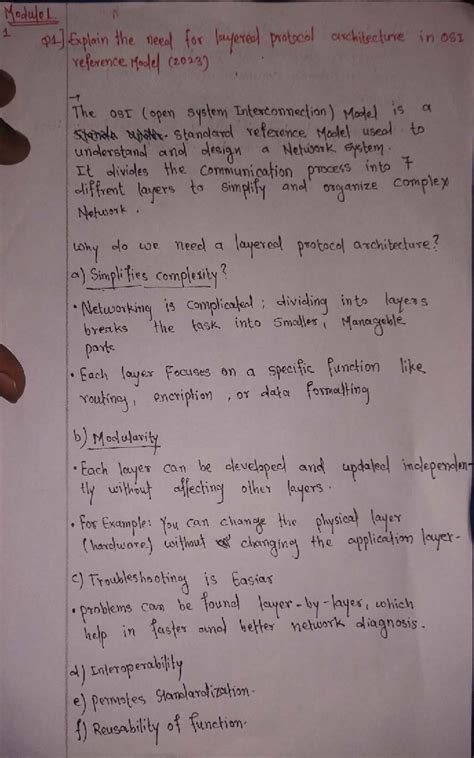 Module 1
1
Q1] Explain the need for layered protocol architecture in OSI
reference Model (2023)
→
The OSI (open system Interconnection) Model is a
standard reference Model used to
understand and design a Network system.
It divides the communication process into 7
diffrent layers to simplify and organize complex
Network.
Why do we need a layered protocol architecture?
a) Simplifies complexity?
• Networking is complicated; dividing into layers
breaks the task into smaller, Managable
parts
• Each layer Focuses on a specific function like
routing, encription, or data formatting
b) Modularity
• Each layer can be developed and updated independen-
tly without affecting other layers.
• For Example: You can change the physical layer
(hardware) without changing the application layer.
c) Troubleshooting is Easiar
• problems can be found layer-by-layer, which
help in faster and better network diagnosis.
d) Interoperability
e) permotes Standardization.
f) Reusability of function.